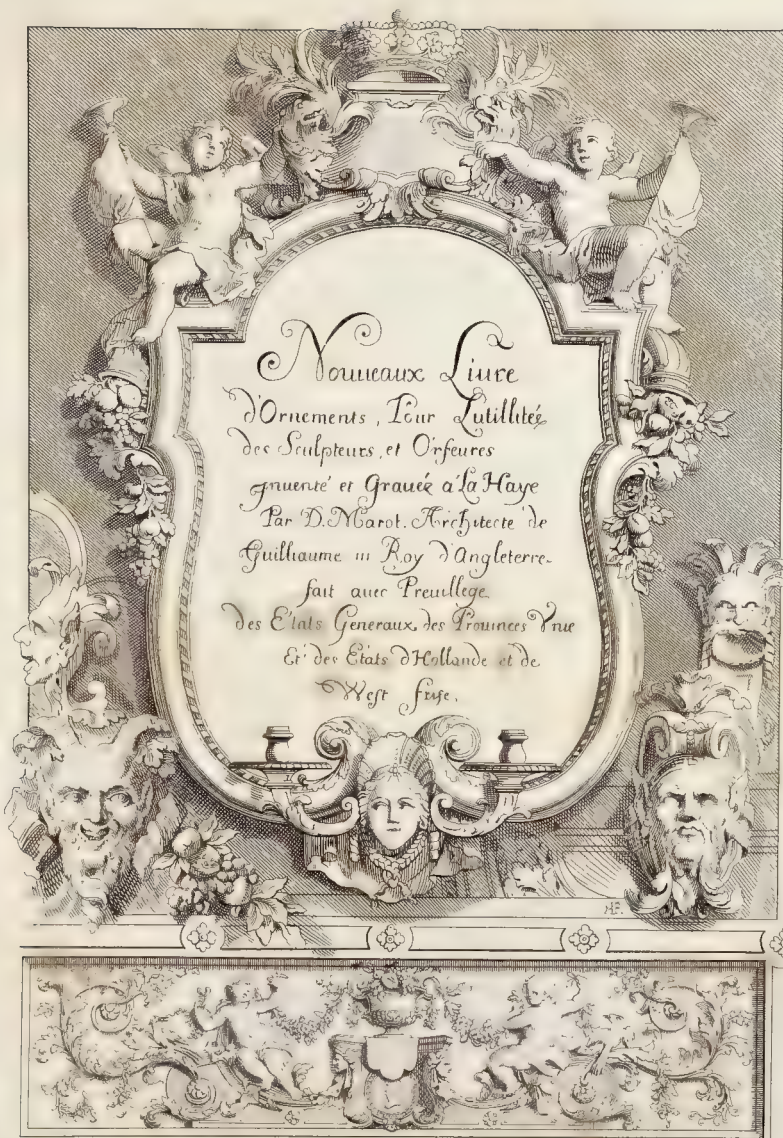 Nouueaux Liure
d'Ornements, Pour Lutillitée
des Sculpteurs, et Orfeures
jnuenté et Grauée a La Haye
Par D. Marot. Architecte de
Guilliaume III Roy d'Angleterre.
fait auec Preuillege
des Etats Generaux des Prouinces Vnie
Et des Etats d'Hollande et de
West frise.